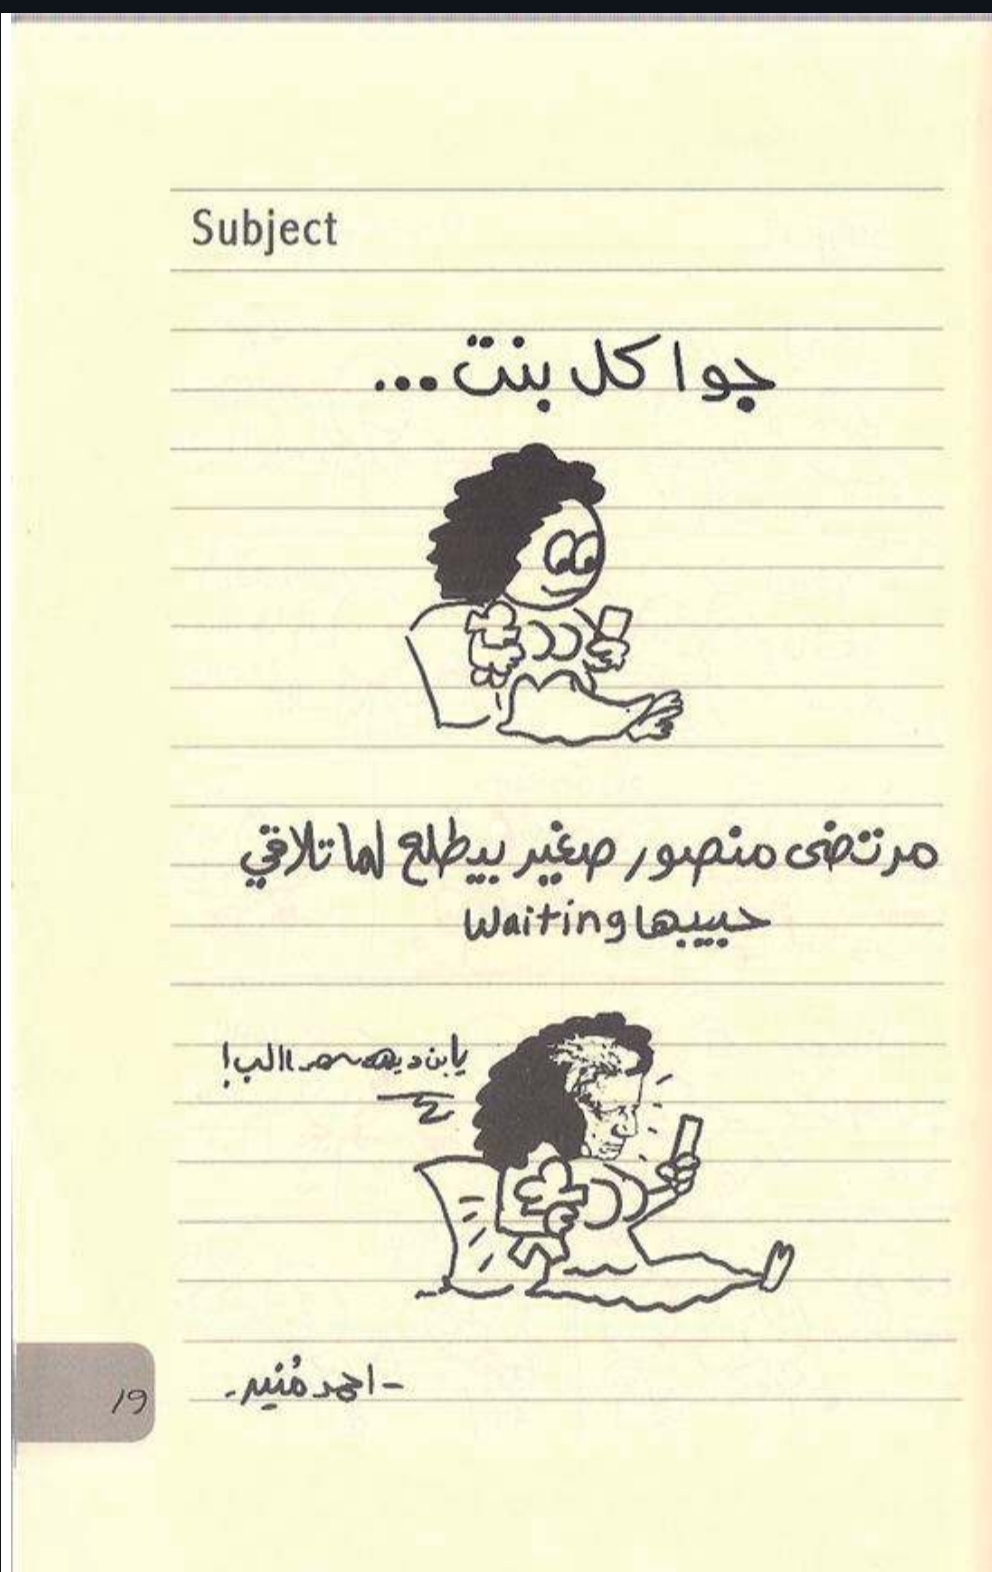 Subject
جوا كل بنت ...
مرتضى منصور صغير بيطلع لما تلاقي
حبيبها Waiting
يا بن د
- احمد مُنير -
19